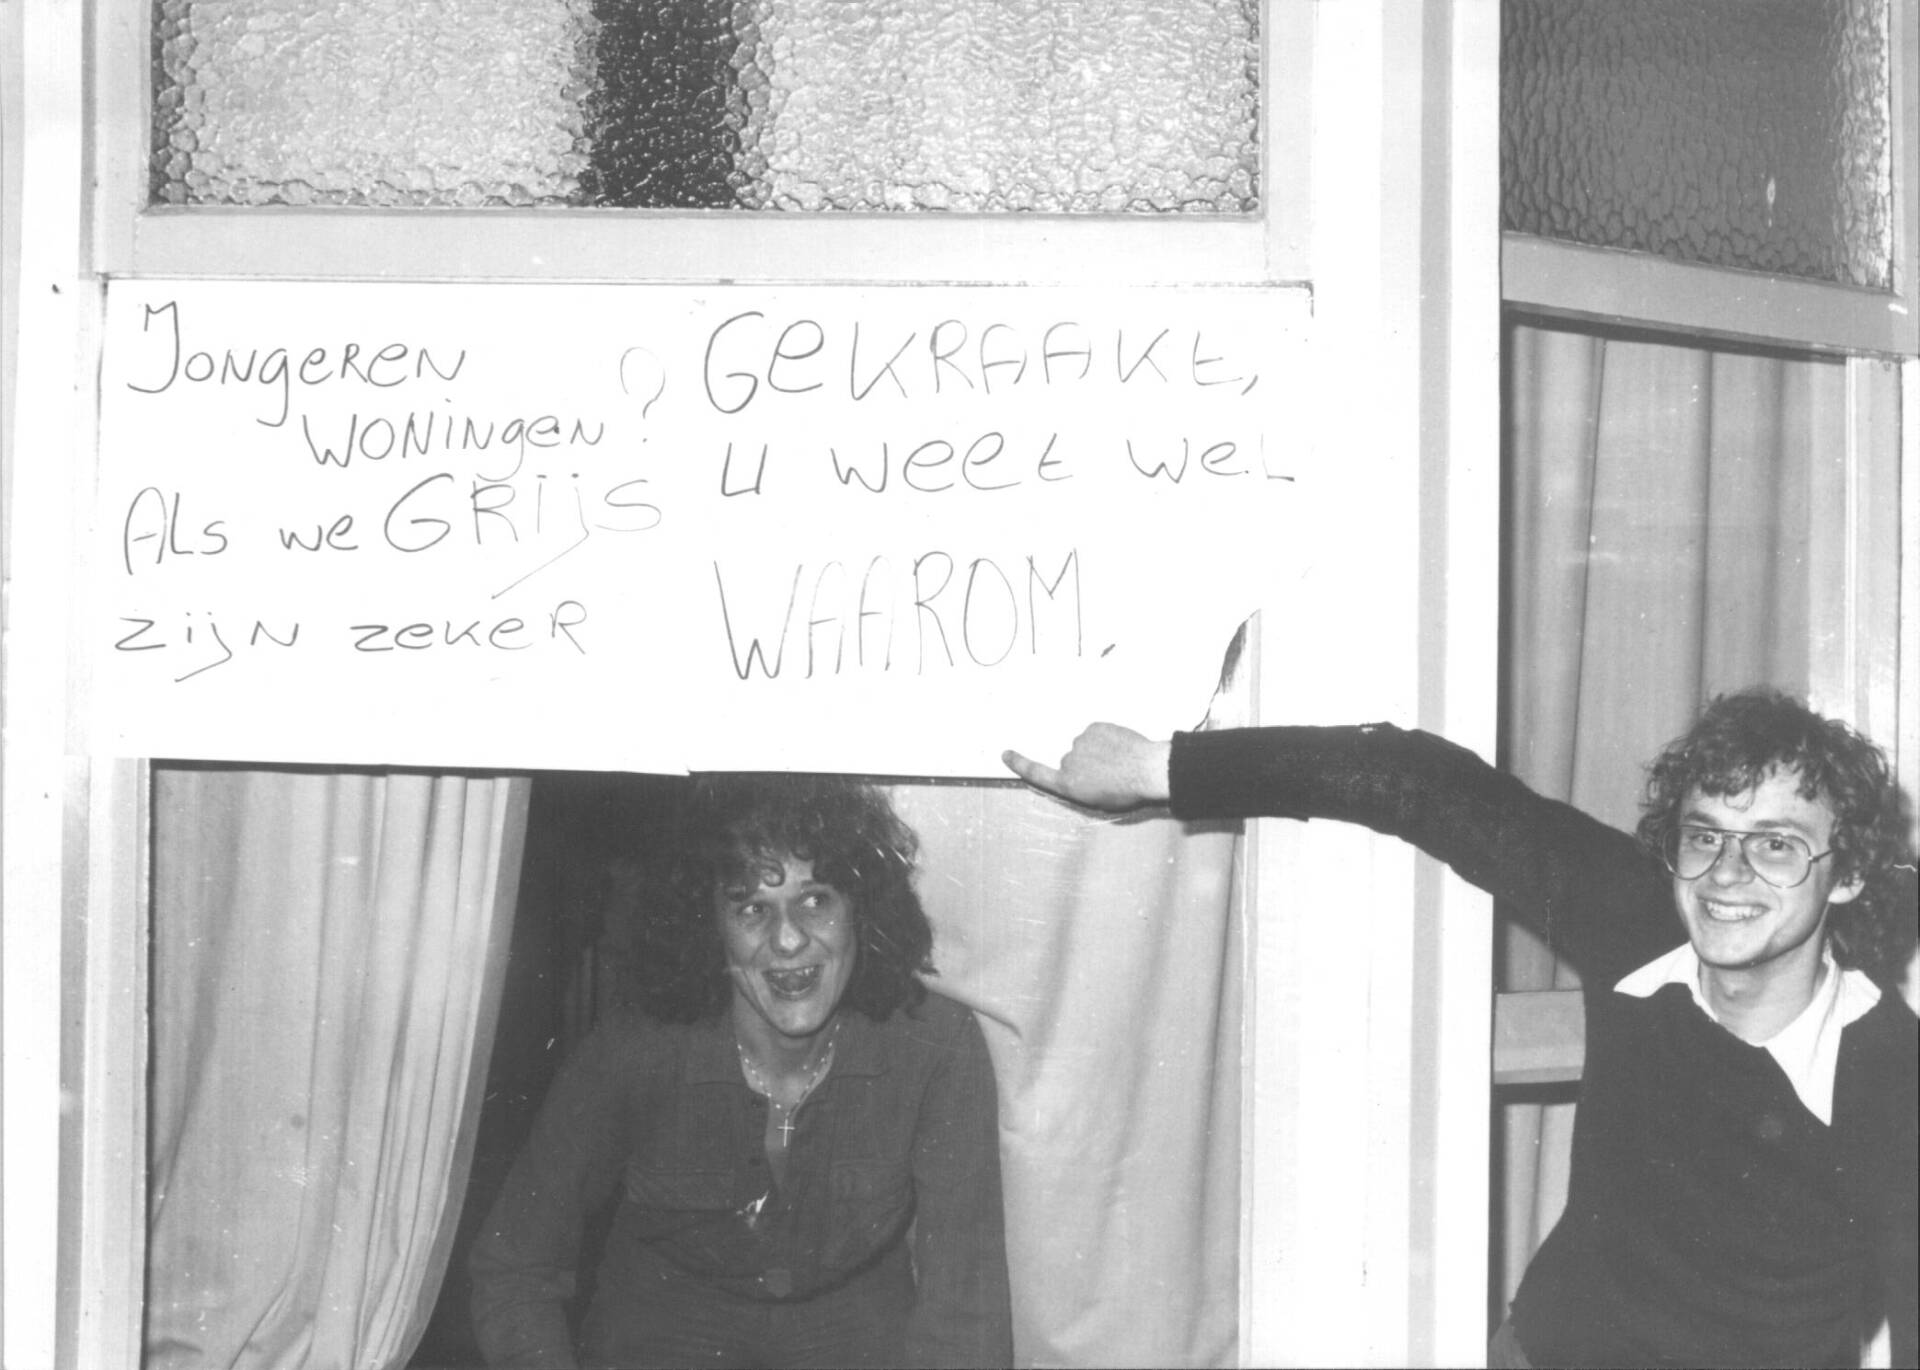 Jongeren
woningen?
Als we GRijs
zijn zeker
GeKRAAKt,
U weet wel
WAAROM.